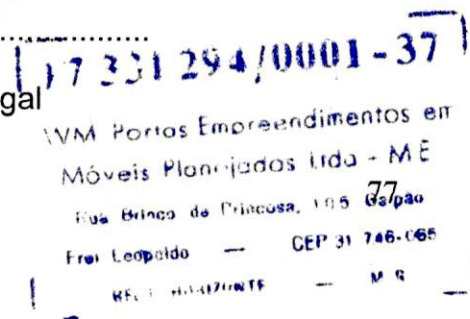 17 331 294/0001-37
gal
WM Portas Empreendimentos em
Móveis Planejados Ltda - ME
Rua Brinco de Princesa, 195 Galpão
77
Frei Leopoldo — CEP 31 746-065
BELO HORIZONTE — M G